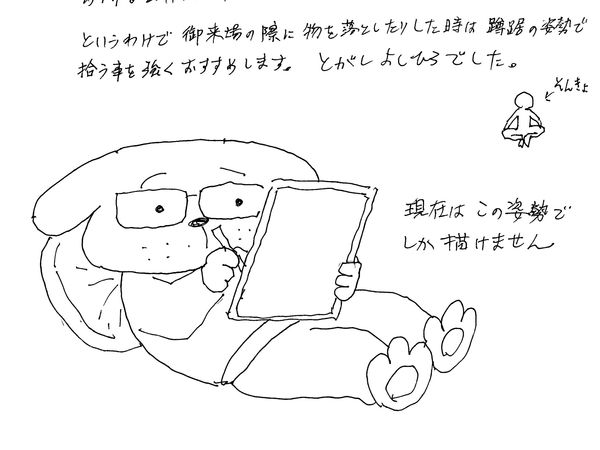 というわけで 御来場の際に 物を落としたりした時は 蹲踞の姿勢で
拾う事を強くおすすめします。 とがしよしひろでした。
そんきょ
現在は この姿勢で
しか描けません